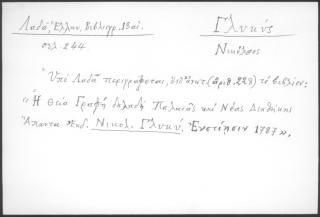 Λαδᾶ, Ἑλλην. Βιβλιογρ. 18 αἰ.
σελ. 244
Γλυκύς
Νικόλαος
Ὑπὸ Λαδᾶ περιγράφεται, (ἀριθ. 228) τὸ βιβλίον:
«Ἡ Θεία Γραφὴ δηλαδὴ Παλαιᾶς καὶ Νέας Διαθήκης
Ἅπαντα Ἐκδ. Νικολ. Γλυκύ, Ἐνετίησιν 1787».